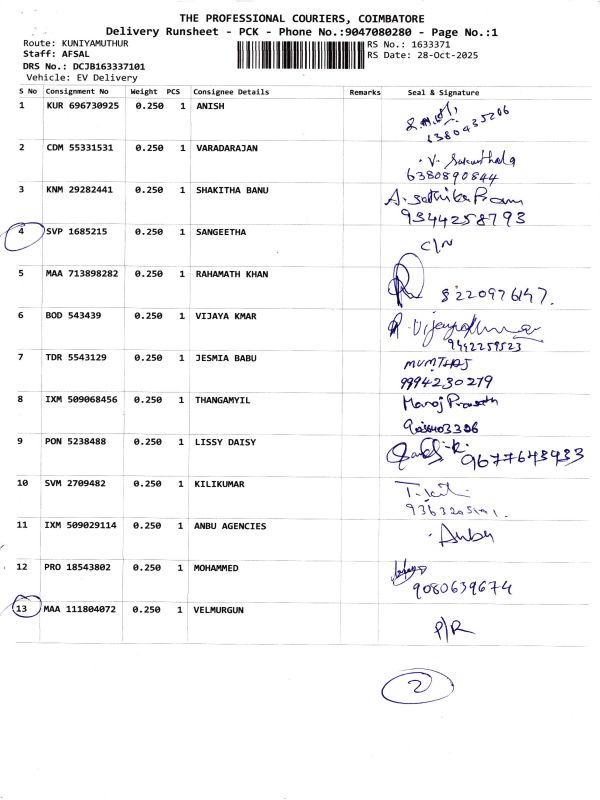 THE PROFESSIONAL COURIERS, COIMBATORE
Delivery Runsheet - PCK - Phone No.:9047080280 - Page No.:1
Route: KUNIYAMUTHUR RS No.: 1633371
Staff: AFSAL RS Date: 28-Oct-2025
DRS No.: DCJB163337101
Vehicle: EV Delivery
S No Consignment No Weight PCS Consignee Details Remarks Seal & Signature
1 KUR 696730925 0.250 1 ANISH
6380435206
2 CDM 55331531 0.250 1 VARADARAJAN V. Sakunthala
6380890844
3 KNM 29282441 0.250 1 SHAKITHA BANU A.
9344258793
4 SVP 1685215 0.250 1 SANGEETHA C/N
5 MAA 713898282 0.250 1 RAHAMATH KHAN 8220976147.
6 BOD 543439 0.250 1 VIJAYA KMAR
9442259523
7 TDR 5543129 0.250 1 JESMIA BABU MUMTHAJ
9994230279
8 IXM 509068456 0.250 1 THANGAMYIL Manoj
9 PON 5238488 0.250 1 LISSY DAISY 9677643433
10 SVM 2709482 0.250 1 KILIKUMAR
11 IXM 509029114 0.250 1 ANBU AGENCIES Anbu
12 PRO 18543802 0.250 1 MOHAMMED
9080639674
13 MAA 111804072 0.250 1 VELMURGUN P/R
2